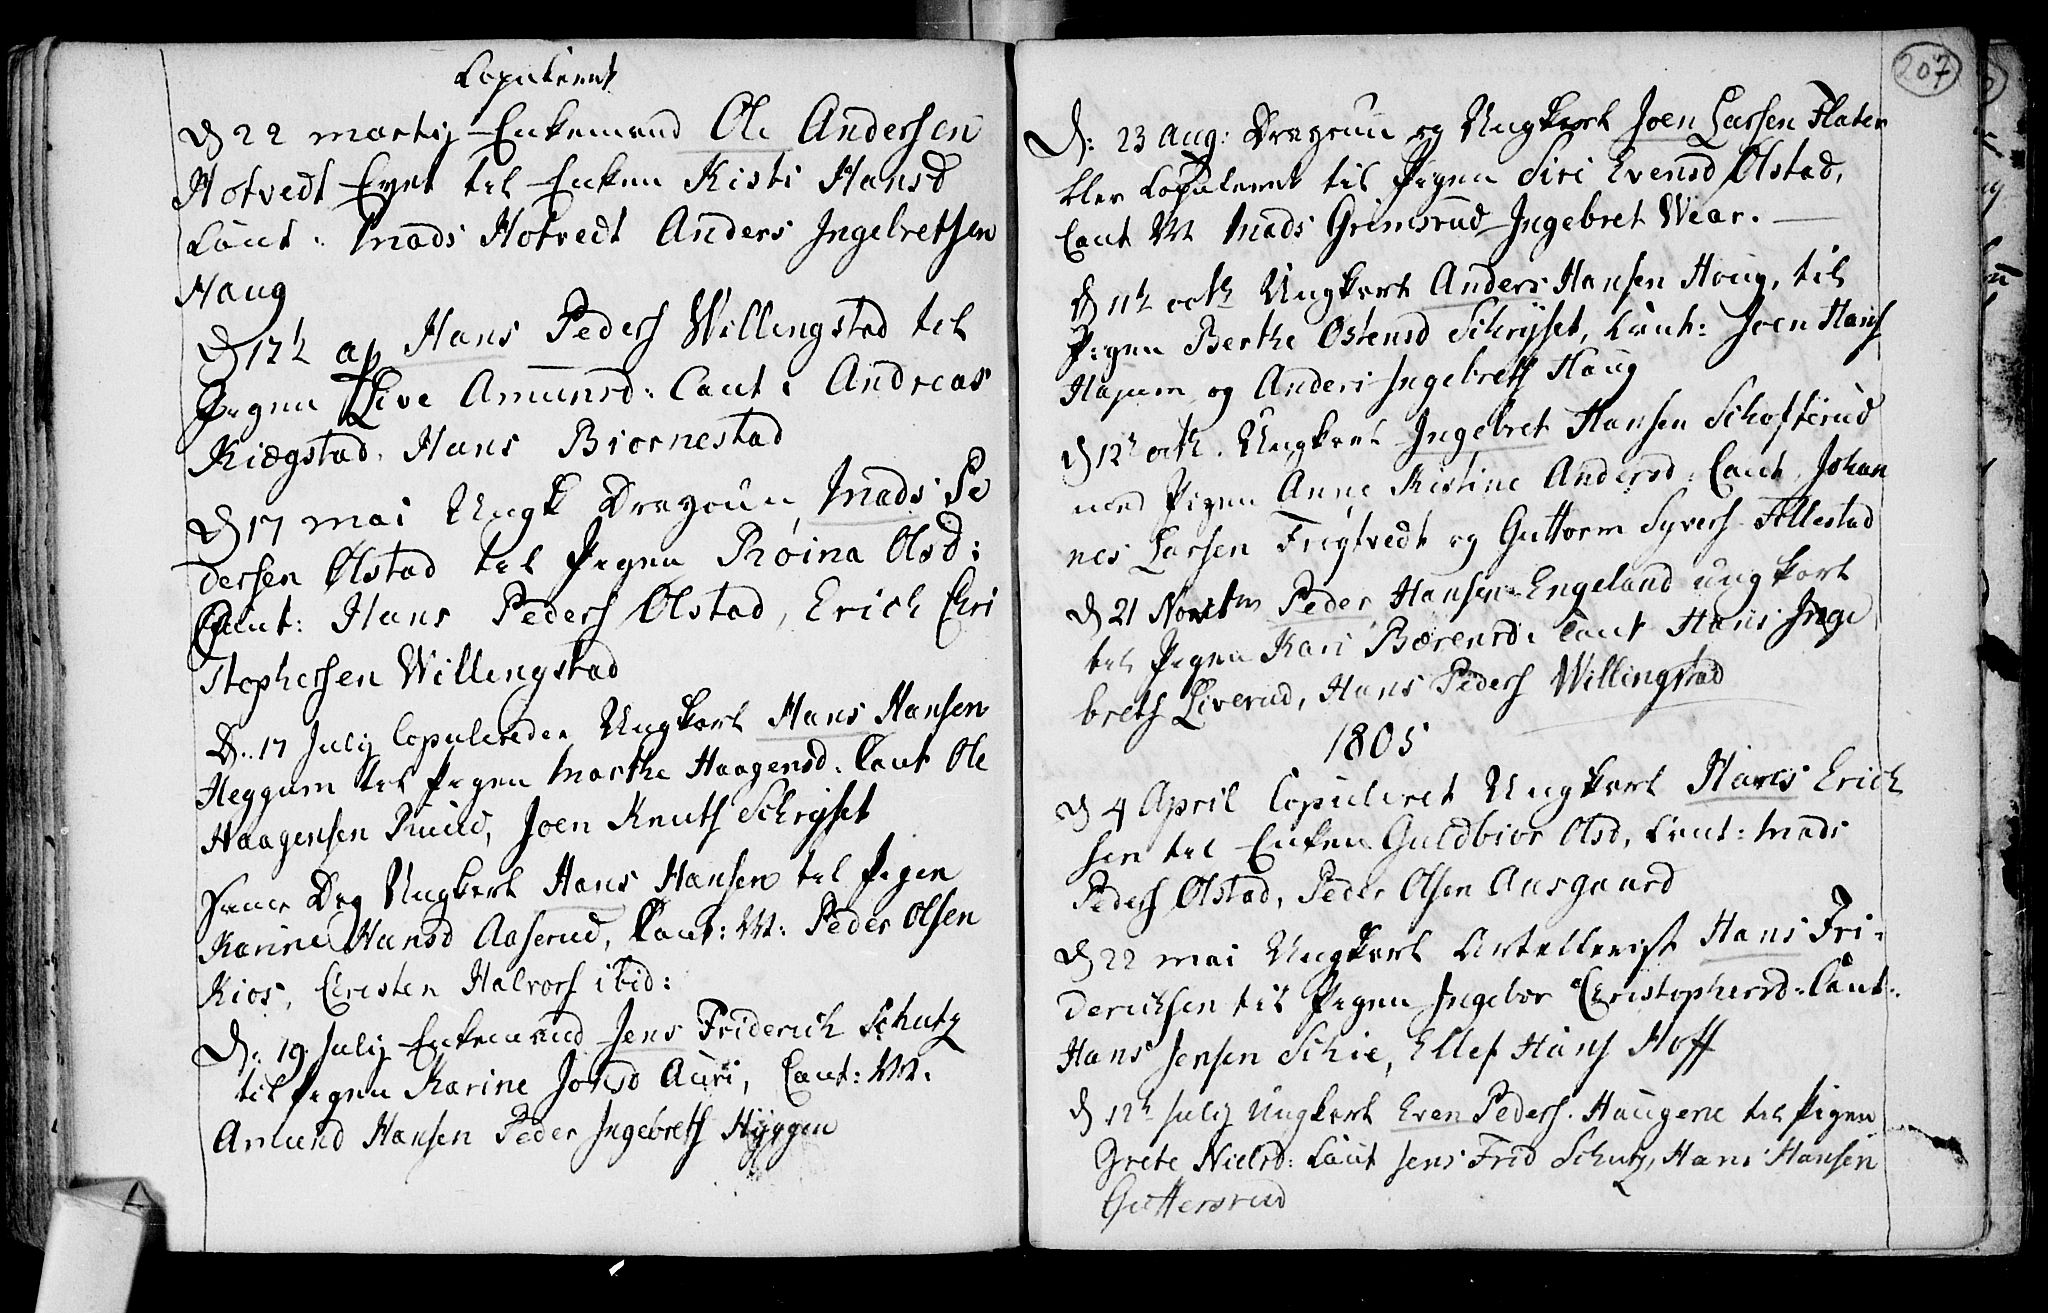 Copuleret
D 22 martij Enkemand Ole Andersen
Hotvedt Eyet til Enken Kisti Hansd
Caut: Mads Hotvedt Anders Ingebretsen
Haug
D 12h ap Hans Peders Willingstad til
Pigen Live Amunsd: Caut: Andreas
Kiægstad, Hans Biornestad
D 17 mai Ungk Dragoun Mads Pe
dersen Ølstad til Pigen Røina Olsd:
Caut: Hans Peders Ølstad, Erich Chri
stophersen Willingstad
D. 17 Julij Copulerede Ungkarl Hans Hansen
Heggum til Pigen Marthe Haagensd. Caut Ole
Haagensen Ruud, Joen Knuts Schryset
samme Dag Ungkarl Hans Hansen til Pigen
Karine Hansd Aaserud, Caut: M: Peder Olsen
Kios, Christen Halvors ibid:
D. 19 Julij Enkemand Jens Friderich Schutz
til Pigen Karine Jonsd Auri, Caut: M.
Amund Hansen Peder Ingebrets Hyggen
207
D: 23 Aug: Dragoun og Ungkarl Joen Larsen Flaten
blev Copuleret til Pigen Siri Evensd Ølstad,
Caut M Mads Grimsrud Ingebret Wear.
D 11h octb Ungkarl Anders Hansen Houg, til
Pigen Berthe Østensd Schryset, Caut: Joen Hans
Hajum og Anders Ingebrets Haug
D 12h octb. Ungkarl Ingebret Hansen Schofterud
med Pigen Anne Kistine Andersd. Caut. Johan
nes Larsen Frigtvedt og Guttorm Syvers Follestad
D 21 Novbm Peder Hansen Engeland ungkarl
til Pigen Kari Bærensd. Caut Hans Inge
brets Liverud, Hans Peders Willingstad
1805
D 4 April Copuleret Ungkarl Hans Erich
sen til Enken Guldbior Olsd, Caut: Mads
Peders Ølstad, Peder Olsen Aasgaard
D 22 mai Ungkarl Artellerist Hans Fri-
derichsen til Pigen Ingebor Christophersd. Caut:
Hans Jensen Schie, Ellef Hans Hoff
D 12h Julij Ungkarl Even Peders. Haugene til Pigen
Grete Nielsd: Caut Jens Frid Schutz, Hans Hansen
Guttersrud